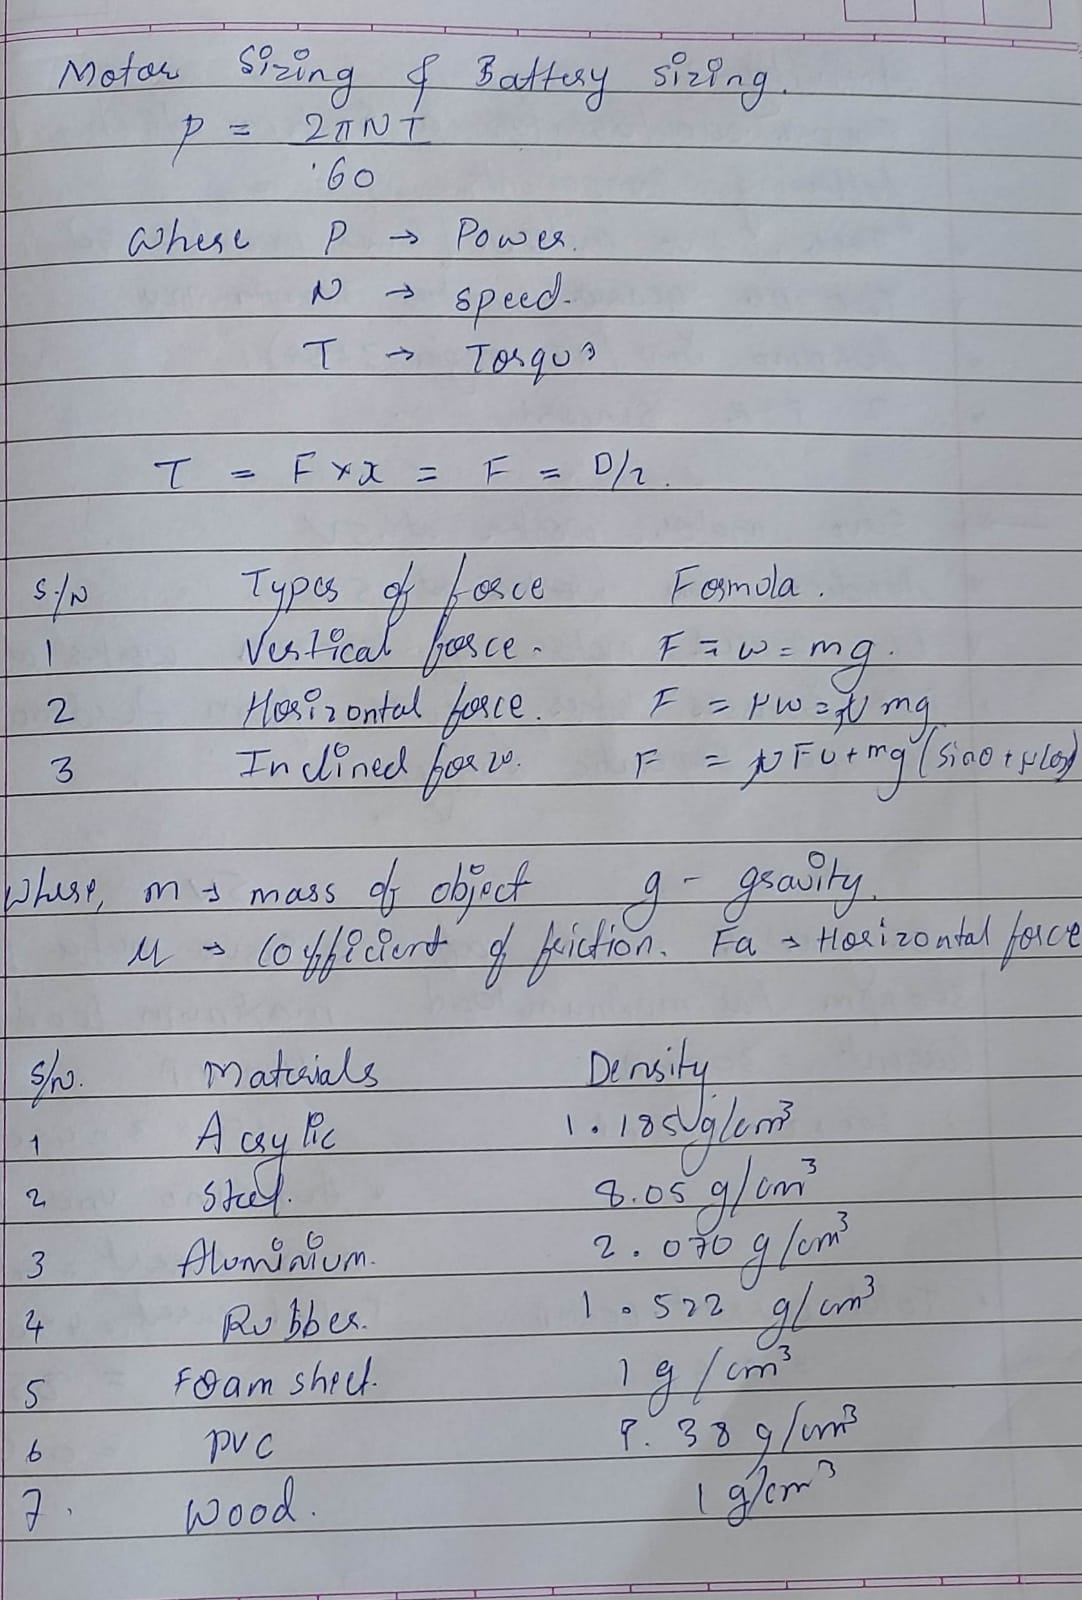 Motor Sizing & Battery sizing.
P = 2πNT
60
Where P → Power.
N → speed.
T → Torque
T = F × x = F = D/2.
S/N Types of force Formula.
1 Vertical force. F = w = mg.
2 Horizontal force. F = μw = μ mg
3 Inclined force. F = Fa + mg (sinθ + μcosθ)
Where, m → mass of object g - gravity.
μ → Cofficient of friction. Fa → Horizontal force
S/N. Materials Density
1 Acrylic 1.185 g/cm³
2 Steel. 8.05 g/cm³
3 Aluminium. 2.070 g/cm³
4 Rubber. 1.522 g/cm³
5 Foam sheet. 1 g/cm³
6 PVC 1.38 g/cm³
7. Wood. 1 g/cm³